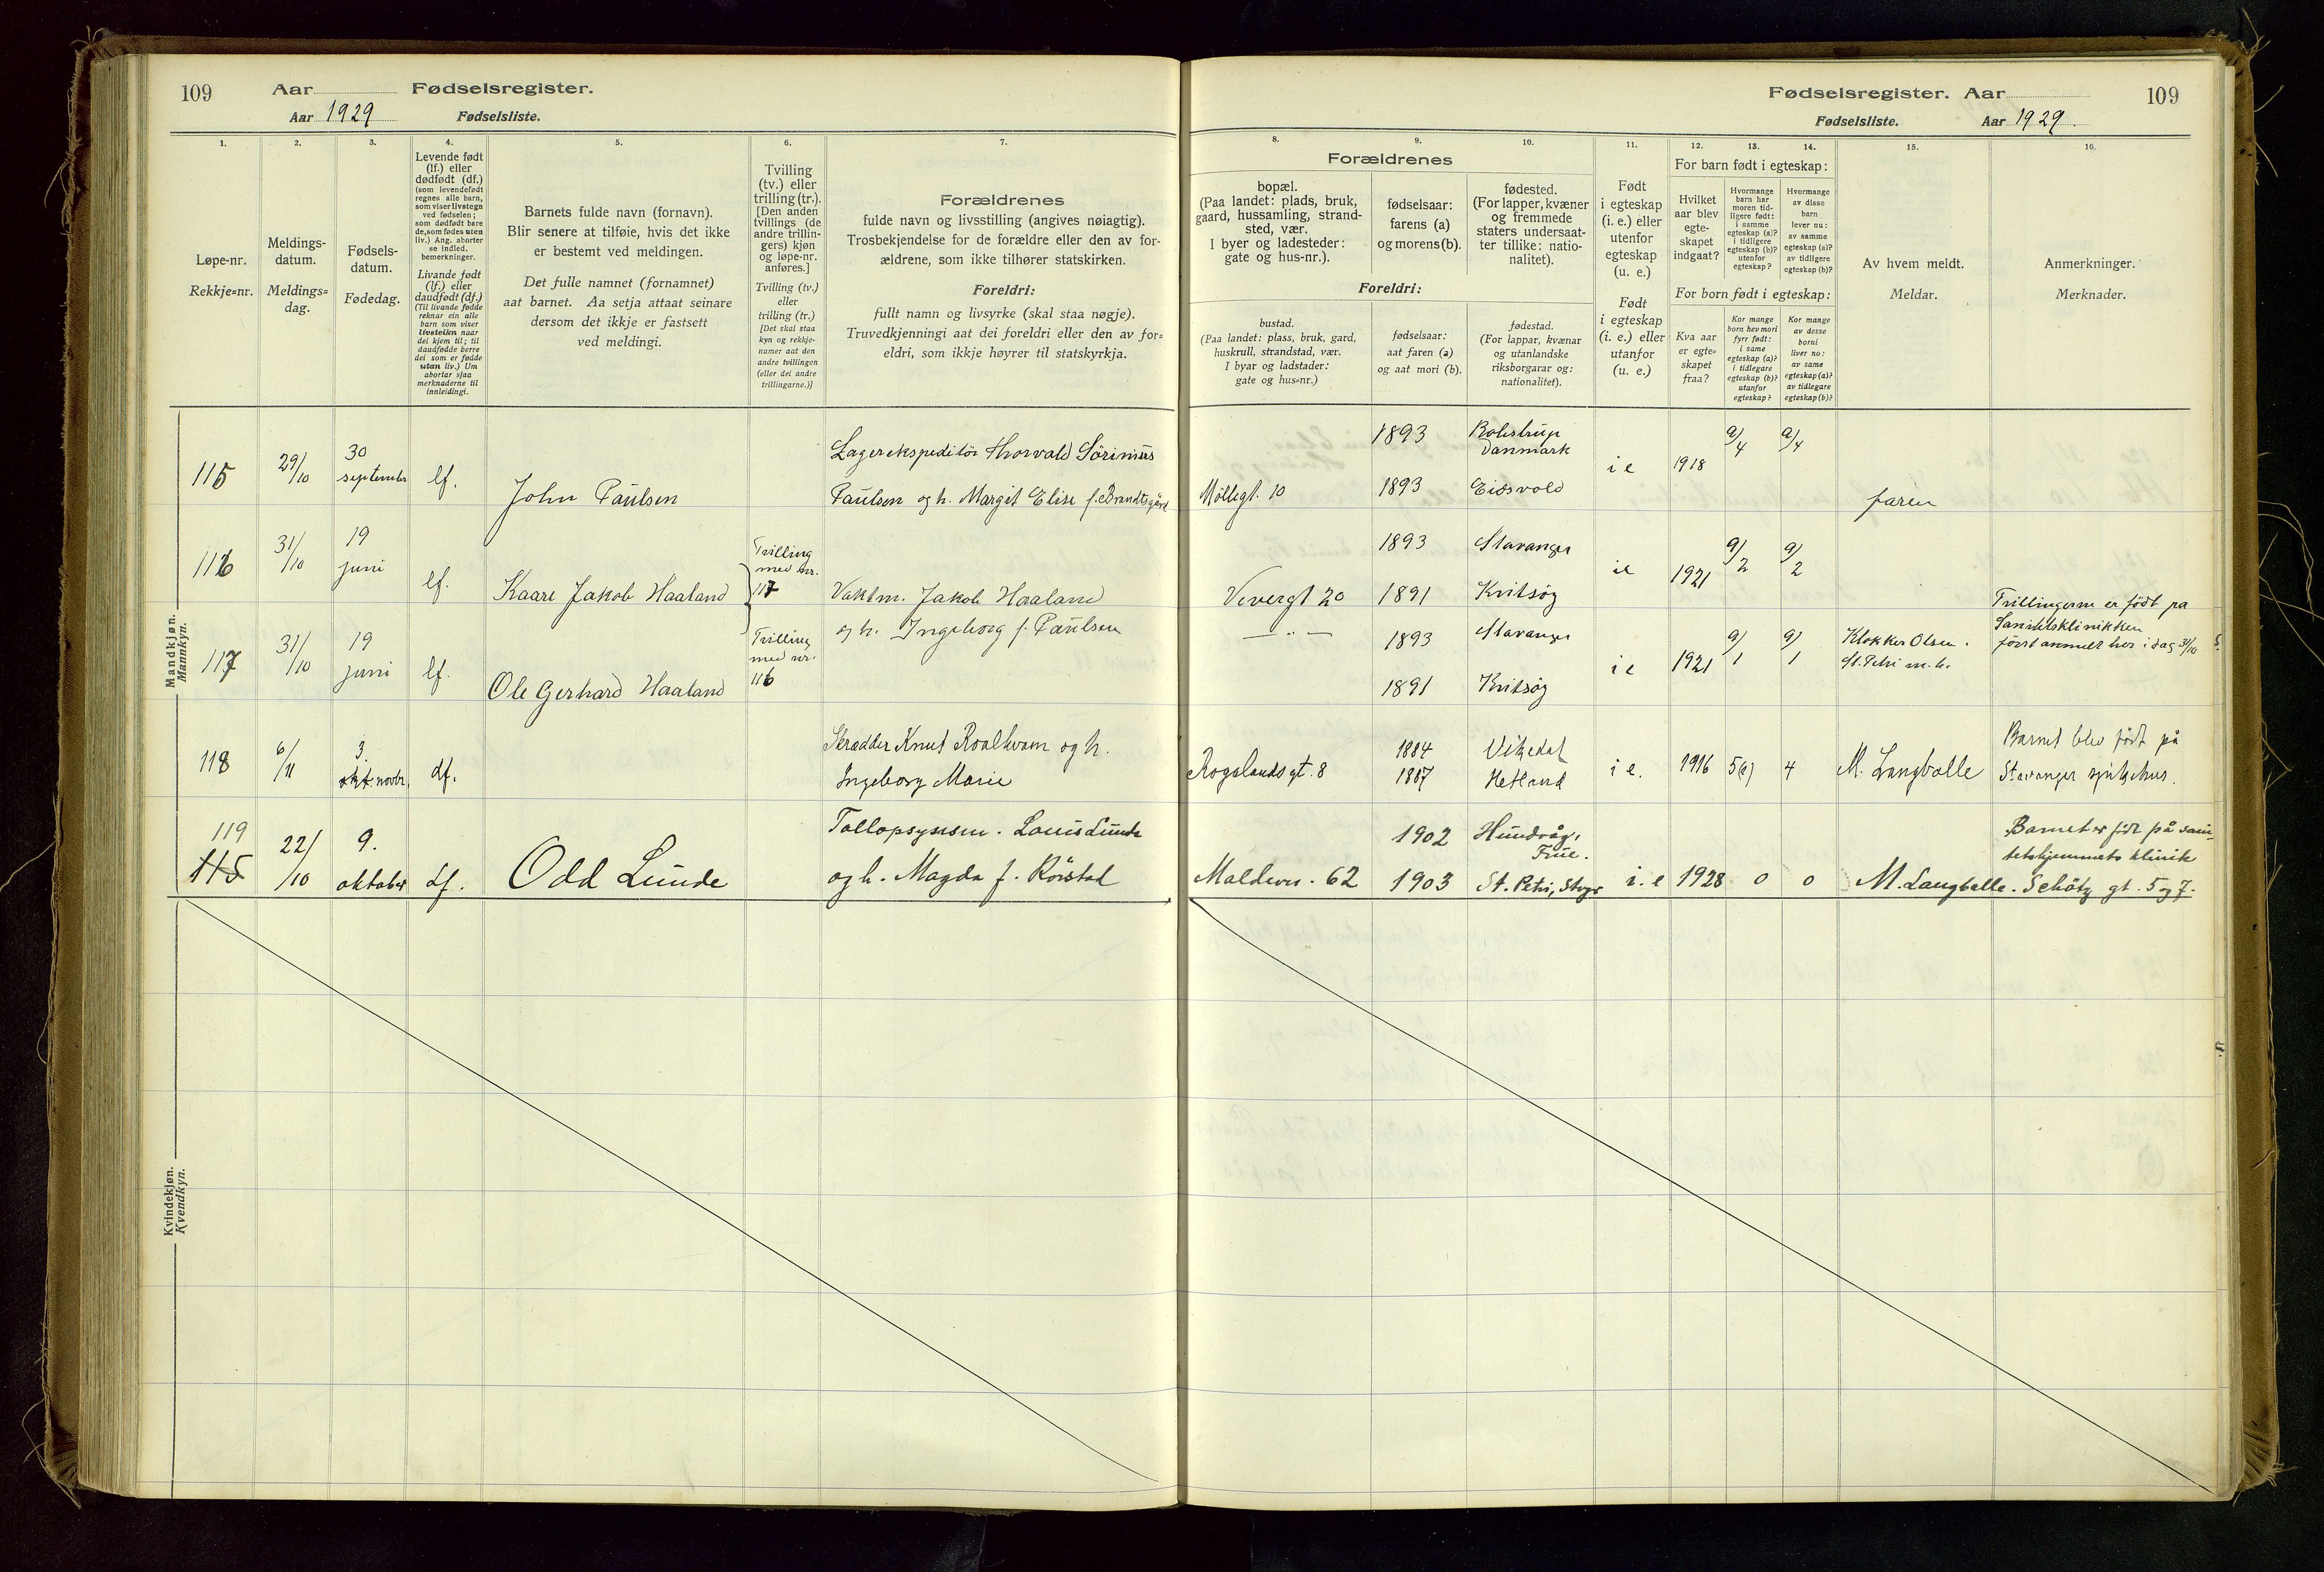 109 Aar Fødselsregister.
Aar 1929 Fødselsliste.
1. 2. 3. 4. 5. 6. 7.
Løpe-nr.
Rekkje=nr.
Meldings-
datum.
Meldings=
dag.
Fødsels-
datum.
Fødedag.
Levende født
(lf.) eller
dødfødt (df.)
(som levendefødt
regnes alle barn,
som viser livstegn
ved fødselen;
som dødfødt bare
de, som fødes uten
liv.) Ang. aborter
se indled.
bemerkninger.
Livande født
(lf.) eller
daudfødt (df.)
(Til livande fødde
reknar ein alle
barn som viser
livsteikn naar
dei kjem til; til
daudfødde berre
dei som er fødde
utan liv.) Um
abortar sjaa
merknaderne til
innleidingi.
Barnets fulde navn (fornavn).
Blir senere at tilføie, hvis det ikke
er bestemt ved meldingen.
Det fulle namnet (fornamnet)
aat barnet. Aa setja attaat seinare
dersom det ikkje er fastsett
ved meldingi.
Tvilling
(tv.) eller
trilling (tr.).
[Den anden
tvillings (de
andre trillin-
gers) kjøn
og løpe-nr.
anføres.]
Tvilling (tv.)
eller
trilling (tr.)
[Det skal staa
kyn og rekkje-
numer aat den
andre tvillingen
(eller dei andre
trillingarne.)]
Forældrenes
fulde navn og livsstilling (angives nøiagtig).
Trosbekjendelse for de forældre eller den av for-
ældrene, som ikke tilhører statskirken.
Foreldri:
fullt namn og livsyrke (skal staa nøgje).
Truvedkjenningi aat dei foreldri eller den av for=
eldri, som ikkje høyrer til statskyrkja.
Mandkjøn.
Mannkyn.
115 29/10 30 september lf. John Paulsen
Lagerekspeditör Thorvald Sörinius
Paulsen og h. Margit Elise f. Brandtsgård
116 31/10 19 juni lf. Kaare Jakob Haaland
Trilling
med nr.
117
Vaktm. Jakob Haaland
og h. Ingeborg f. Paulsen
117 31/10 19 juni lf. Ole Gerhard Haaland
Trilling
med nr.
116
118 6/11 3. okt. novbr. df.
Skrædder Knut Roalkvam og h.
Ingeborg Marie
119
115 22/10 9. oktober df. Odd Lunde
Tollopsynsm. Louis Lunde
og h. Magda f. Rörstad
Kvindekjøn.
Kvendkyn.
Fødselsregister. Aar 109
Fødselsliste. Aar 1929.
8. 9. 10. 11. 12. 13. 14. 15. 16.
Forældrenes
bopæl.
(Paa landet: plads, bruk,
gaard, hussamling, strand-
sted, vær.
I byer og ladesteder:
gate og hus-nr.).
fødselsaar:
farens (a)
og morens (b).
fødested.
(For lapper, kvæner
og fremmede
staters undersaat-
ter tillike: natio-
nalitet).
Foreldri:
bustad.
(Paa landet: plass, bruk, gard,
huskrull, strandstad, vær.
I byar og ladstader:
gate og hus=nr.)
fødselsaar:
aat faren (a)
og aat mori (b).
fødestad.
(For lappar, kvænar
og utanlandske
riksborgarar og:
nationalitet).
Født
i egteskap
(i. e.) eller
utenfor
egteskap
(u. e.)
Født
i egteskap
(i. e.) eller
utanfor
(u. e.)
For barn født i egteskap:
Hvilket
aar blev
egte-
skapet
indgaat?
Hvormange
barn har
moren tid-
ligere født:
i samme
egteskap (a)?
i tidligere
egteskap (b)?
utenfor
egteskap?
Hvormange
av disse
barn
lever nu:
av samme
egteskap (a)?
av tidligere
egteskap (b)?
For born født i egteskap:
Kva aar
er egte=
skapet
fraa?
Kor mange
born hev mori
fyrr født:
i same
egteskap (a)?
i tidlegare
egteskap (b)?
utanfor
egteskap?
Kor mange
av desse
borni
liver no:
av same
egteskap (a)?
av tidlegare
egteskap (b)?
Av hvem meldt.
Meldar.
Anmerkninger.
Merknader.
Möllegt. 10 1893 Danmark
1893 Eidsvold
i e 1918 a/4 a/4 faren
Vevergt 20 1893 Stavanger
1891 Kvitsöy
i e 1921 a/2 a/2
— " — 1893 Stavanger
1891 Kvitsöy
i e 1921 a/1 a/1
Klokker Olsen.
St. Petri m.h.
Trillingerne er födt pa
Sanitetsklinikken
först anmeldt her i dag 31/10
Rogalands gt. 8 1884 Vikedal
1887 Hetland
i e. 1916 5(a) 4 M. Langballe
Barnet blev födt på
Stavanger sykehus.
1902 Hundvåg,
Frue.
Maldevn. 62 1903 St. Petri, Stvgr i. e 1928 0 0 M. Langballe.
Barnet er födt på sani-
tetshjemmets klinik
Schötz gt. 5 og 7.